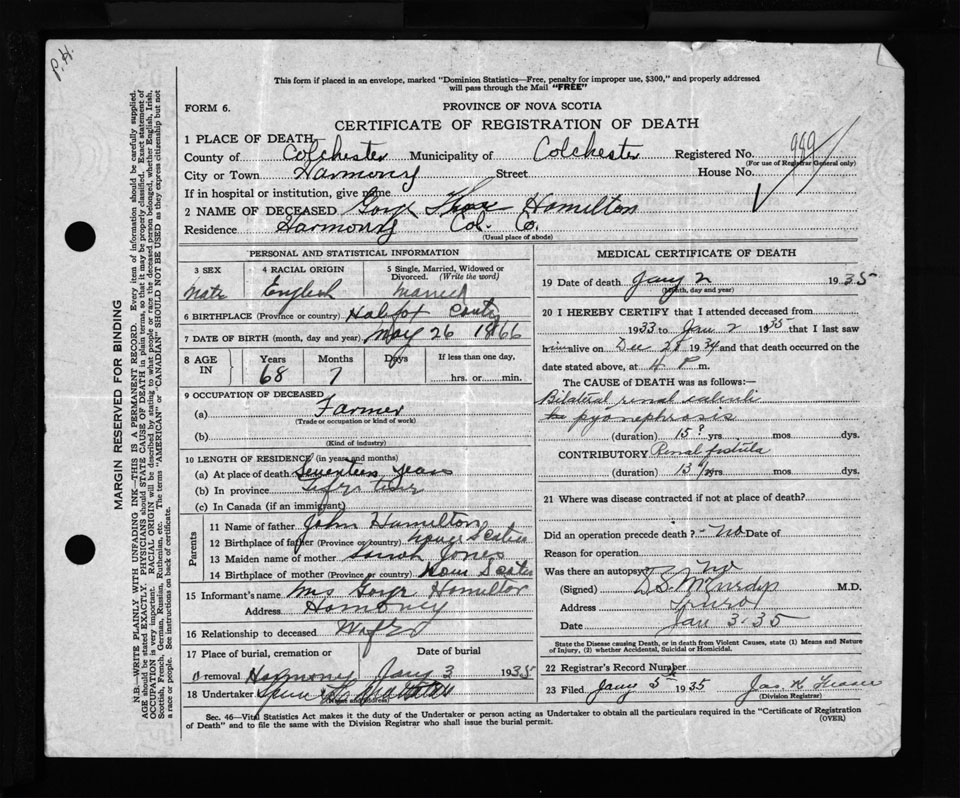 P.H.
This form if placed in an envelope, marked "Dominion Statistics—Free, penalty for improper use, $300," and properly addressed
will pass through the Mail "FREE"
FORM 6.
PROVINCE OF NOVA SCOTIA
CERTIFICATE OF REGISTRATION OF DEATH
1 PLACE OF DEATH
County of Colchester Municipality of Colchester Registered No. 989
(For use of Registrar General only)
City or Town Harmony Street House No.
If in hospital or institution, give name
2 NAME OF DECEASED Hamilton
Residence Harmony Col. Co.
(Usual place of abode)
PERSONAL AND STATISTICAL INFORMATION
3 SEX 4 RACIAL ORIGIN 5 Single, Married, Widowed or
Divorced. (Write the word)
Male English Married
6 BIRTHPLACE (Province or country) Halifax County
7 DATE OF BIRTH (month, day and year) May 26 1866
8 AGE IN Years Months Days If less than one day,
68 7 hrs. or min.
9 OCCUPATION OF DECEASED
(a) Farmer
(Trade or occupation or kind of work)
(b)
(Kind of industry)
10 LENGTH OF RESIDENCE (in years and months)
(a) At place of death Seventeen years
(b) In province Life time
(c) In Canada (if an immigrant)
Parents
11 Name of father John Hamilton
12 Birthplace of father (Province or country) Nova Scotia
13 Maiden name of mother Sarah Jones
14 Birthplace of mother (Province or country) Nova Scotia
15 Informant's name Mrs Hamilton
Address Harmony
16 Relationship to deceased Wife
17 Place of burial, cremation or Date of burial
removal Harmony Jany 3 1935
18 Undertaker
(Name and address)
MEDICAL CERTIFICATE OF DEATH
19 Date of death Jany 2 1935
(Month, day and year)
20 I HEREBY CERTIFY that I attended deceased from
1933 to Jan 2 1935 that I last saw
him alive on Dec 28 1934 and that death occurred on
date stated above, at 4 P m.
The CAUSE OF DEATH was as follows:—
Bilateral renal calculi
pyonephrosis
(duration) 15? yrs. mos. dys.
CONTRIBUTORY Renal fistula
(duration) 13 yrs. mos. dys.
21 Where was disease contracted if not at place of death?
Did an operation precede death? - No Date of
Reason for operation
Was there an autopsy No
(Signed) D.S. McCurdy M.D.
Address Truro
Date Jan 3-35
State the Disease causing Death, or in death from Violent Causes, state (1) Means and Nature
of Injury, (2) whether Accidental, Suicidal or Homicidal.
22 Registrar's Record Number
23 Filed Jany 5 1935 Jas. K.
(Division Registrar)
Sec. 46—Vital Statistics Act makes it the duty of the Undertaker or person acting as Undertaker to obtain all the particulars required in the "Certificate of Registration
of Death" and to file the same with the Division Registrar who shall issue the burial permit.
(OVER)
MARGIN RESERVED FOR BINDING
N.B.—WRITE PLAINLY WITH UNFADING INK—THIS IS A PERMANENT RECORD. Every item of information should be carefully supplied.
AGE should be stated EXACTLY. PHYSICIANS should STATE CAUSE OF DEATH in plain terms, so that it may be properly classified. Exact statement of
OCCUPATION is very important. RACIAL ORIGIN will be described by stating to what people or race the deceased person belonged, whether English, Irish,
Scottish, French, German, Russian, Ruthenian, etc. The terms "AMERICAN" or "CANADIAN" SHOULD NOT BE USED as they express citizenship but not
a race or people. See instructions on back of certificate.